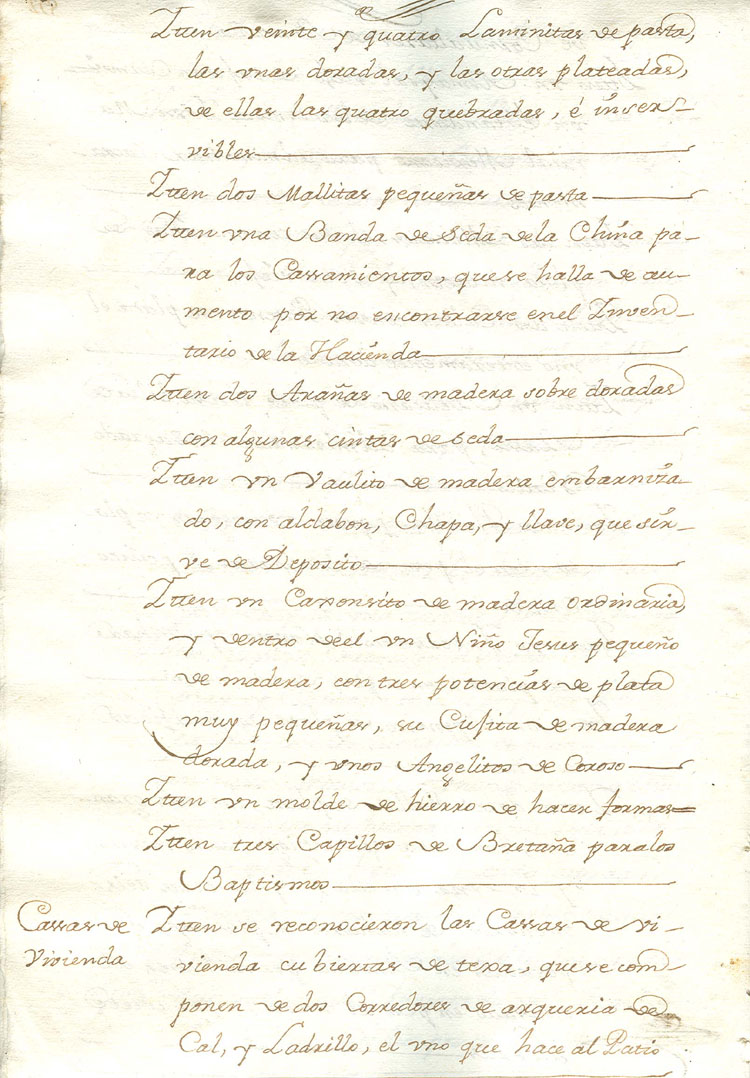 Ytten veinte y quatro Laminitas de pasta,
las vnas doradas, y las otras plateadas,
de ellas las quatro quebradas, é inser-
vibles
Ytten dos Mallitas pequeñas de pasta
Ytten vna Banda de Seda de la China pa-
ra los Cassamientos, que se halla de au-
mento por no encontrarse en el Ynven-
tario de la Hacienda
Ytten dos Arañas de madera sobre doradas
con algunas cintas de Seda
Ytten vn Vaulito de madera embarniza-
do, con aldabon, Chapa, y llave, que sir-
ve de Deposito
Ytten vn Caxonsito de madera ordinaria,
y dentro de el vn Niño Jesus pequeño
de madera, con tres potencias de plata
muy pequeñas, su Cusita de madera
dorada, y vnos Angelitos de Coroso
Ytten vn molde de hierro de hacer formas=
Ytten tres Capillos de Bretaña para los
Baptismos
Cassas de
Vivienda
Ytten se reconocieron las Cassas de vi-
vienda cubiertas de texa, que se com-
ponen de dos Corredores de arqueria de
Cal, y Ladrillo, el vno que hace al Patio